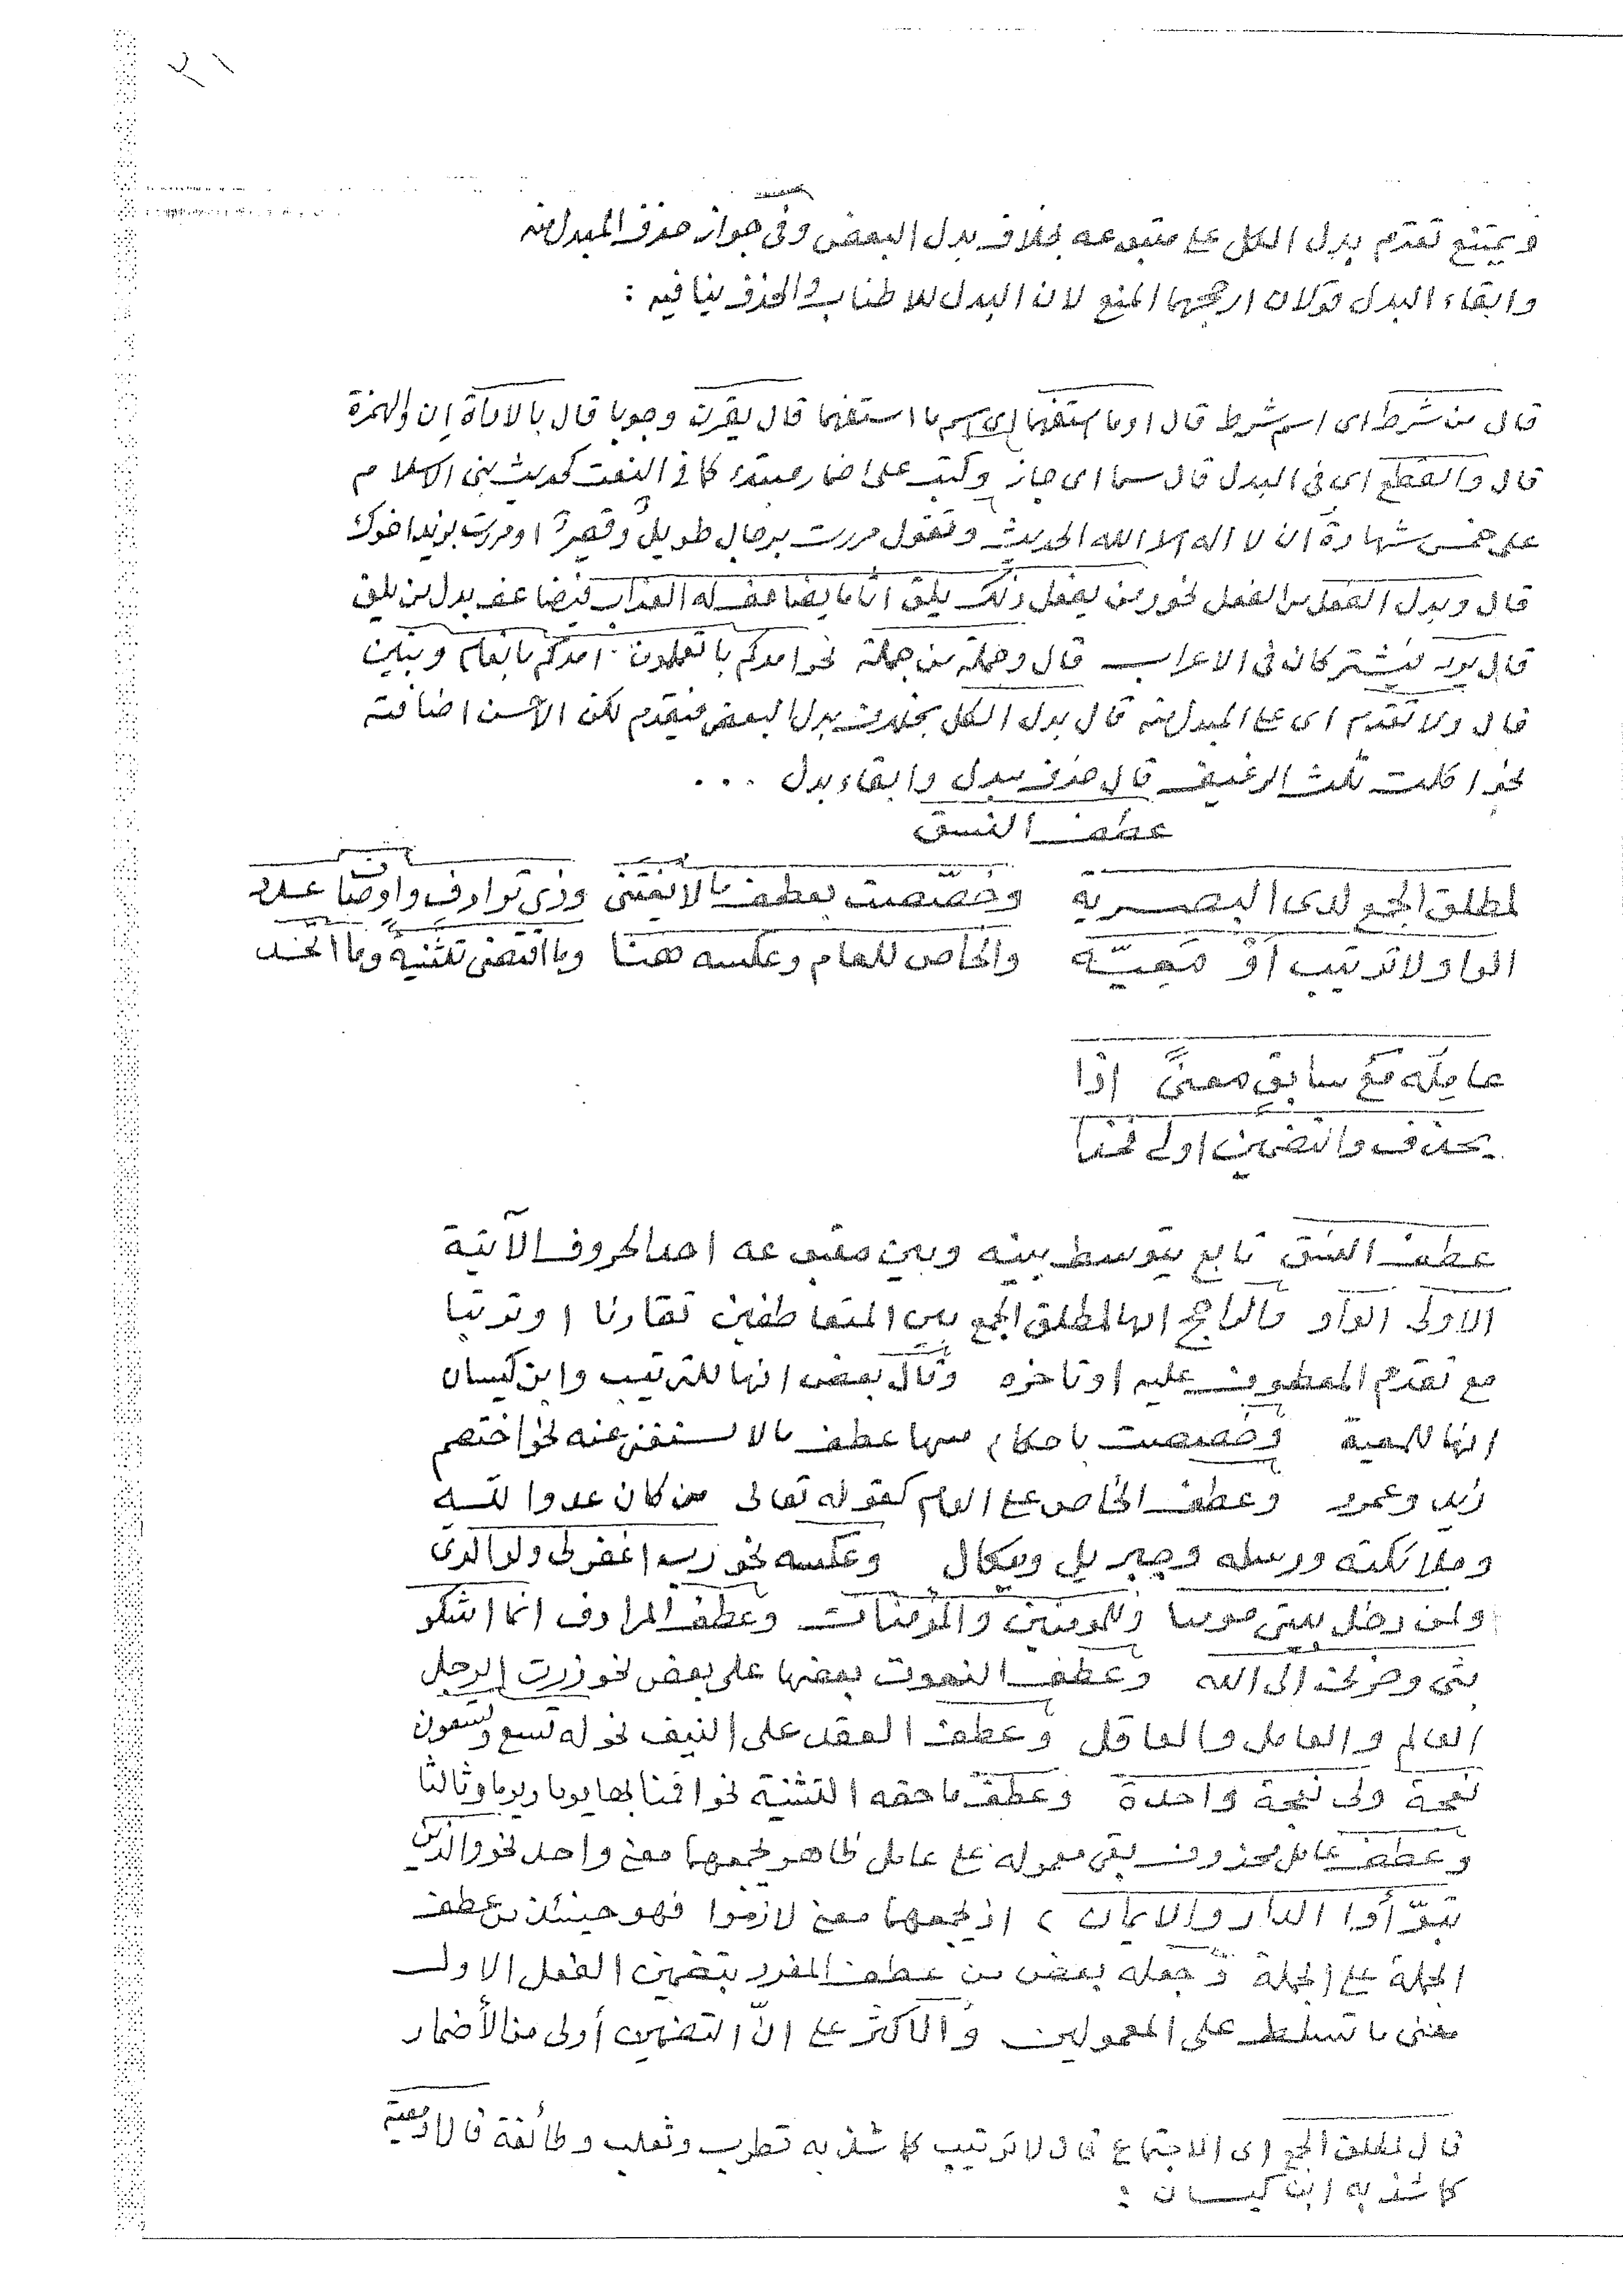 ٢١
ويمتنع تقدم بدل الكل على متبوعه بخلاف بدل البعض وفى جواز حذف المبدل منه
وابقاء البدل قولان ارجحهما المنع لان البدل للاطناب والحذف ينافيه :
قال من شرط اى اسم شرط قال او ما استفهما اى اسم ما استفهما قال يقرن وجوبا قال بالاداة ان والهمزة
قال والقطع اى فى البدل قال سما اى جاز وكتب على اضمار مبتدء كما فى النعت كحديث بنى الاسلام
على خمس شهادة ان لا اله الا الله الحديث وتقول مررت برجال طويل وقصير او مررت بزيد اخوك
قال وبدل الفعل من الفعل نحو ومن يفعل ذلك يلق اثاما يضاعف له العذاب فيضاعف بدل من يلق
قال فيشتركان فى الاعراب قال وجملة من جملة نحو امدكم بما تعملون امدكم بانعام وبنين
قال ولا تقدم اى على المبدل منه قال بدل الكل بخلاف بدل البعض فيتقدم لكن الاحسن اضافته
نحو اكلت ثلث الرغيف قال حذف مبدل وابقاء بدل ...
عطف النسق
لمطلق الجمع لدى البصريه وخصصت بعطف ما لا يغتنى وذى ترادف واوصا عدد
الواو لا ترتيب أو معيّه والخاص للعام وعكسه هنا وما اقتضى تثنيه وما
عامله مع سابق معنىً اذا
يحذف والتضمين اولى فخذا
عطف النسق تابع يتوسط بينه وبين متبوعه احد الحروف الآتية
الاولى الواو والراجح انها لمطلق الجمع بين المتعاطفين تقارنا او ترتبا
مع تقدم المعطوف عليه او تاخره وقال بعض انها للترتيب وابن كيسان
انها للمعية وخصصت باحكام منها عطف ما لا يستغنى عنه نحو اختصم
زيد وعمرو وعطف الخاص على العام كقوله تعالى من كان عدوا لله
وملائكته ورسله وجبريل وميكال وعكسه نحو رب اغفرلى ولوالدى
ولمن دخل بيتى مومنا وللمومنين والمؤمنات وعطف المرادف انما اشكو
بثى وحزنى الى الله وعطف النعوت بعضها على بعض نحو زرت الرجل
العالم والعامل والعاقل وعطف العقد على النيف نحو له تسع وتسعون
نعجة ولى نعجة واحدة وعطف ما حقه التثنية نحو اقمنا بها يوما ويوما وثالثا
وعطف عامل محذوف بقى معموله على عامل ظاهر يجمعهما معنى واحد نحو والذين
تبوّأوا الدار والايمان ، اذ يجمعهما معنى لازموا فهو حينئذ من عطف
الجملة على الجملة وجعله بعض من عطف المفرد بتضمين الفعل الاول
معنى ما تسلط على المعمولين والاكثر على انّ التضمين أولى من الأضمار
قال لمطلق الجمع اى الاجتماع قال لا ترتيب كما شذ به قطرب وثعلب وطائفة قال او معية
كما شذ به ابن كيسان :